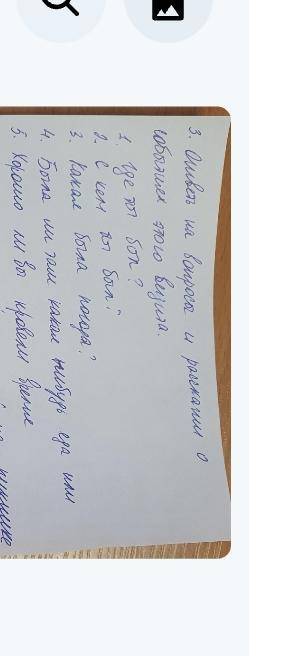 3. Ответь на вопросы и расскажи о
событиях этого визита.
1. Где ты был?
2. С кем ты был?
3. Какая была погода?
4. Была ли там какая нибудь еда или
5. Хорошо ли вы провели время